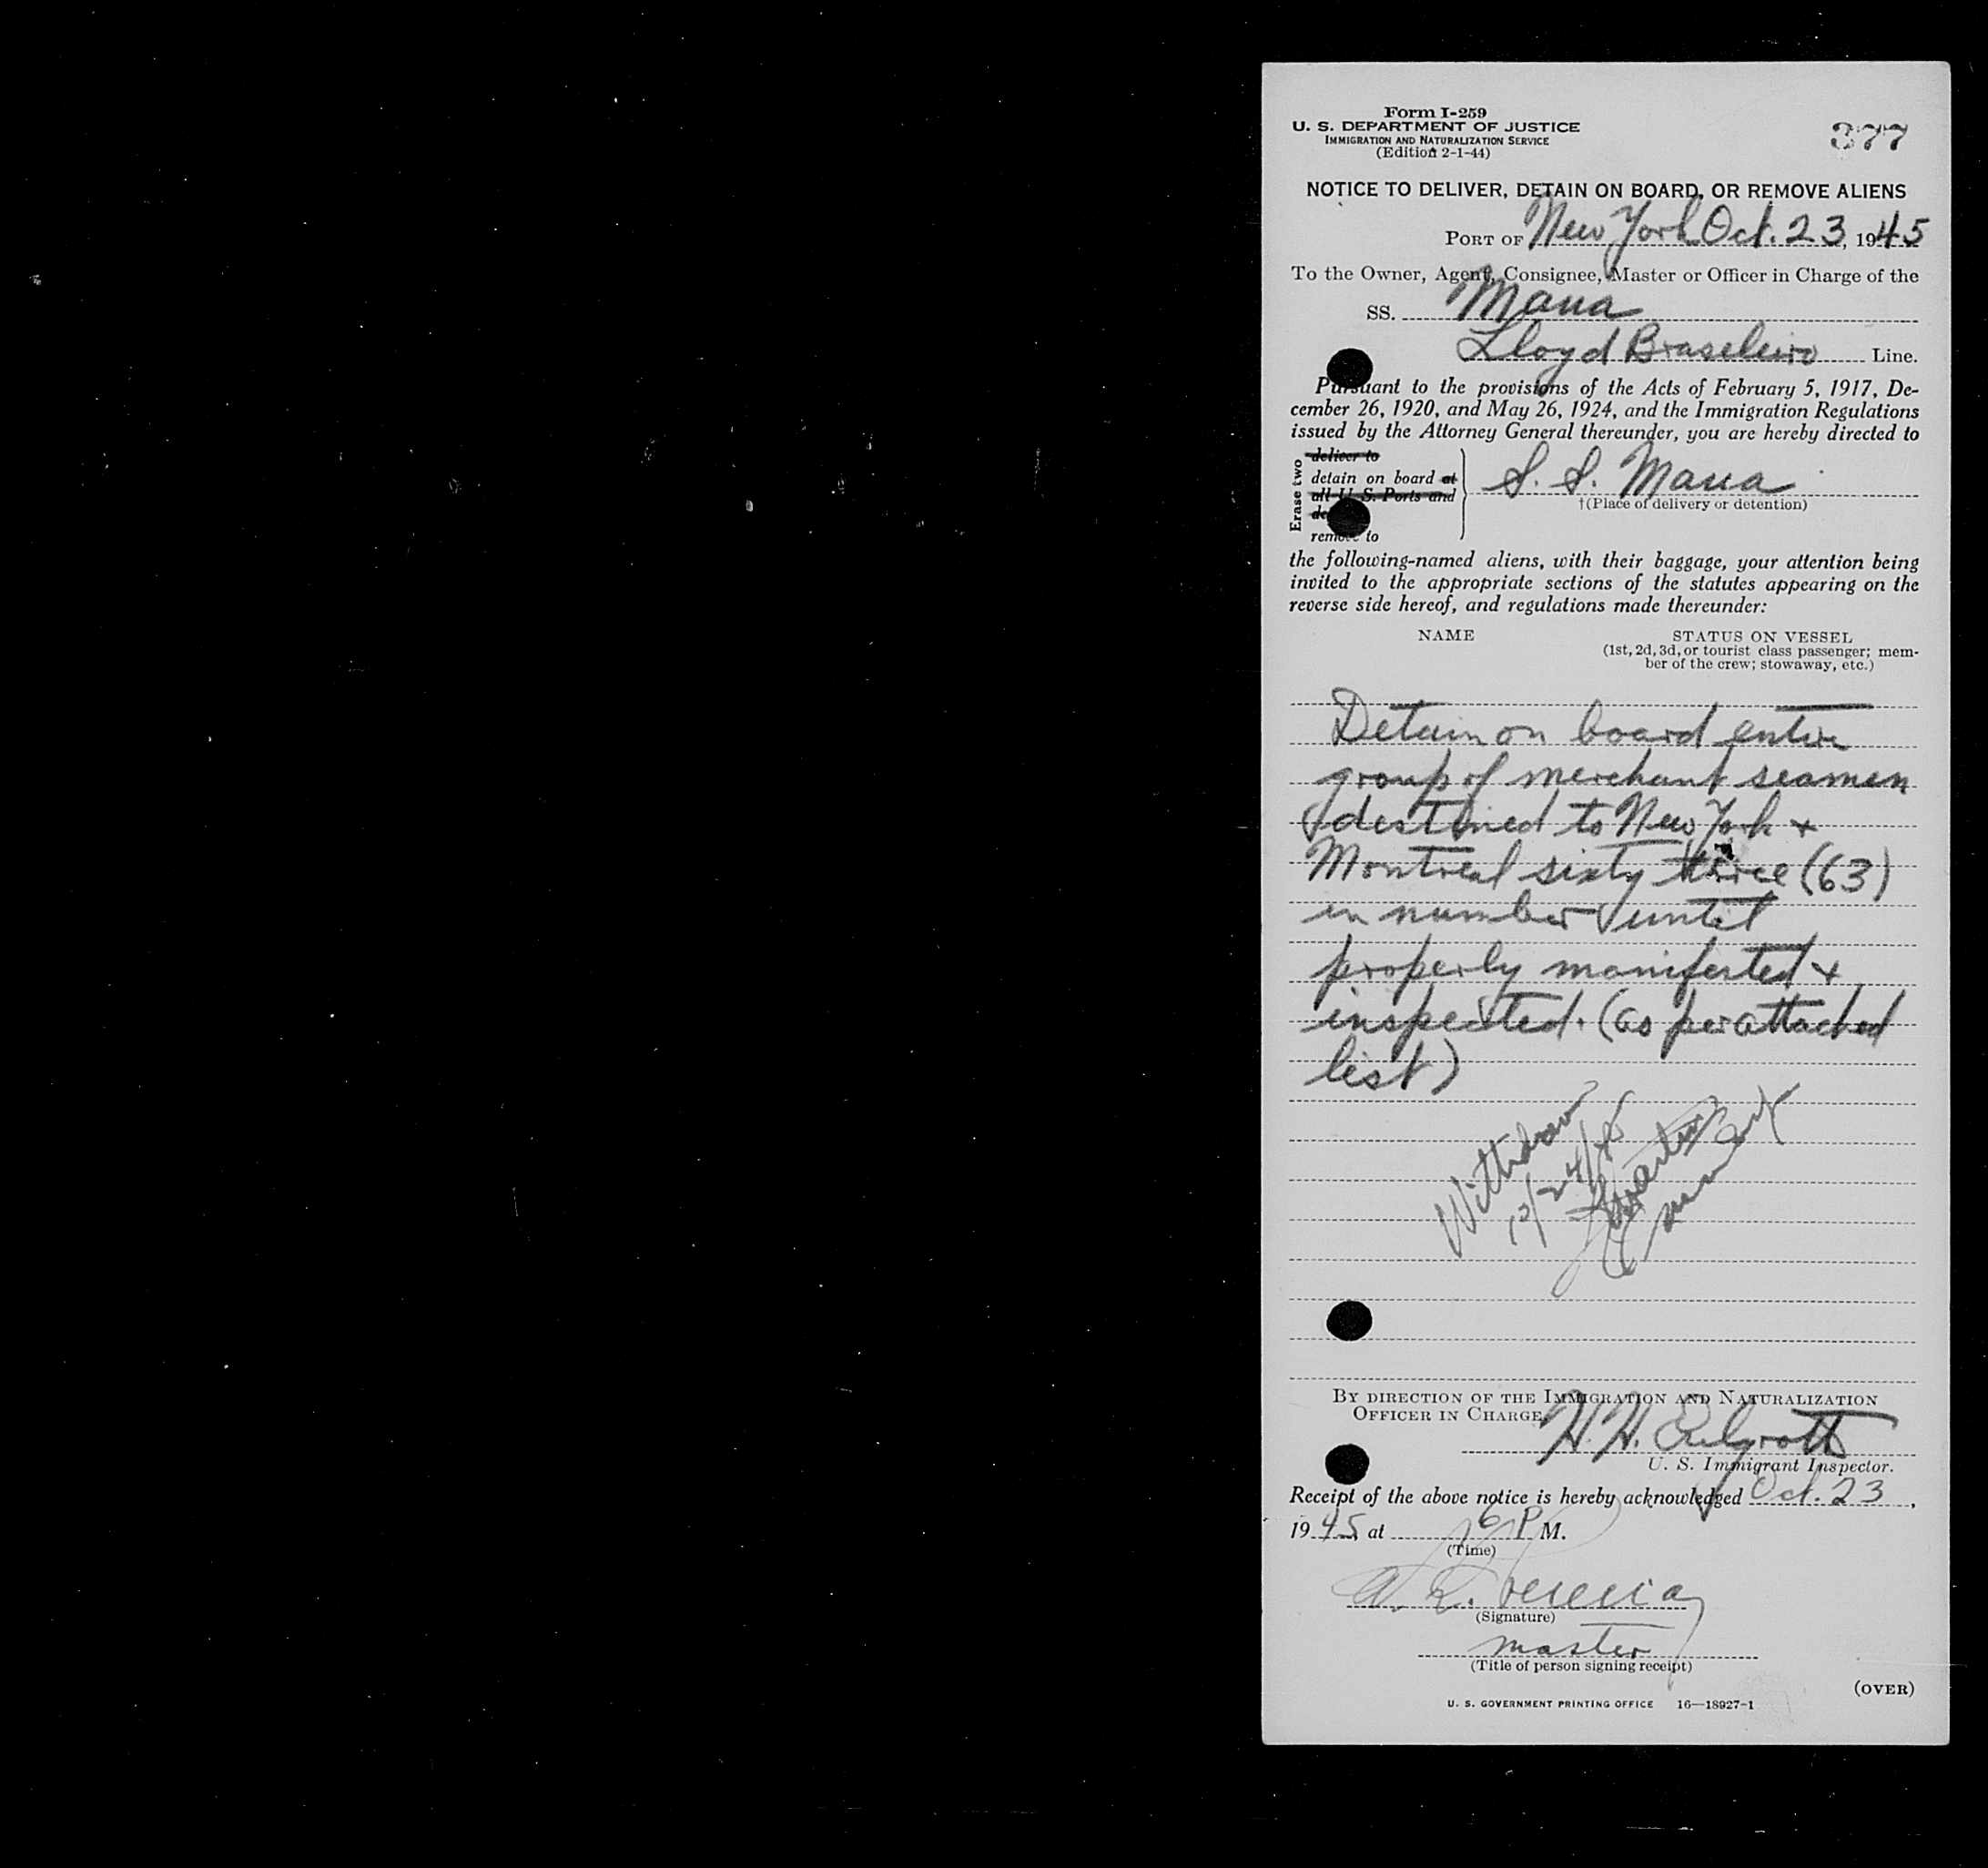 Form I-259
U. S. DEPARTMENT OF JUSTICE
IMMIGRATION AND NATURALIZATION SERVICE
(Edition 2-1-44)
377
NOTICE TO DELIVER, DETAIN ON BOARD, OR REMOVE ALIENS
PORT OF New York Oct. 23, 1945
To the Owner, Agent, Consignee, Master or Officer in Charge of the
SS. Maua
Lloyd Brasileiro Line.
Pursuant to the provisions of the Acts of February 5, 1917, De-
cember 26, 1920, and May 26, 1924, and the Immigration Regulations
issued by the Attorney General thereunder, you are hereby directed to
Erase two
deliver to
detain on board at
all U. S. Ports and
remove to
S. S. Maua
†(Place of delivery or detention)
the following-named aliens, with their baggage, your attention being
invited to the appropriate sections of the statutes appearing on the
reverse side hereof, and regulations made thereunder:
NAME
STATUS ON VESSEL
(1st, 2d, 3d, or tourist class passenger; mem-
ber of the crew; stowaway, etc.)
Detain on board entire
group of merchant seamen
destined to New York +
Montreal sixty three (63)
in number until
properly manifested +
inspected. (as per attached
list)
Withdrawn
10/24/45
BY DIRECTION OF THE IMMIGRATION AND NATURALIZATION
OFFICER IN CHARGE,
H. H.
U. S. Immigrant Inspector.
Receipt of the above notice is hereby acknowledged Oct. 23,
1945, at 6 P M.
(Time)
(Signature)
master
(Title of person signing receipt)
(OVER)
U. S. GOVERNMENT PRINTING OFFICE 16—18927-1